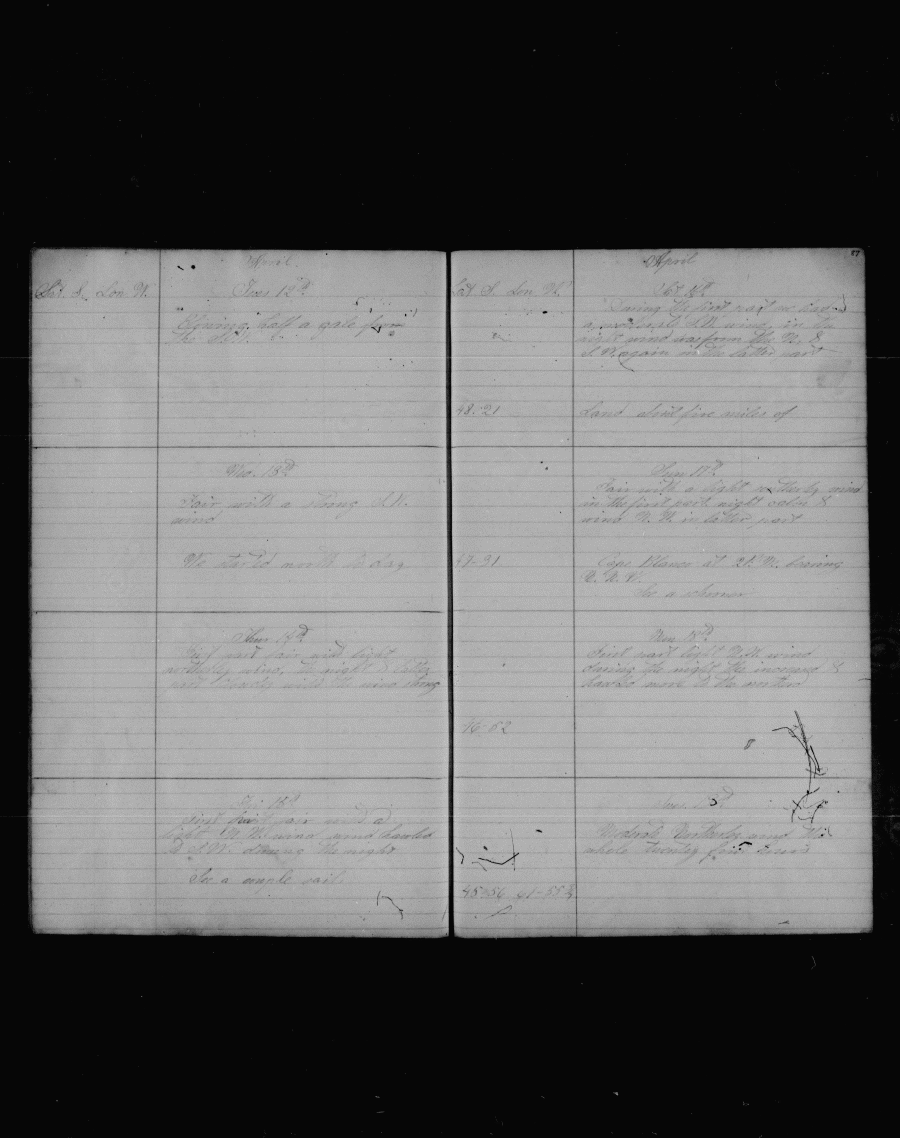 April
Lat. S. Lon. W.
Tues 12th
Blowing half a gale from
the S.W.
Wed. 13th
Fair with a strong S.W.
wind
We started north to day
Thur 14th
First part fair with light
northerly wind, the night & latter
part with the wind strong
Fri 15th
First part fair with a
light N.W. wind wind hauled
to S.W. during the night
See a couple sail
April
Lat S. Lon. W.
Sat 16th
During the first part we had
a moderate S.W. wind in the
night wind was from the N. &
S.W. again in the latter part
48-21
Land about five miles of
Sun 17th
Fair with a light westherly wind
in the first part night calm &
wind N.W. in latter part
47-31
Cape Blanco at 2 P.M. bearing
See a schooner
Mon 18th
First part light North wind
during the night the increased &
hauled more to the
46-52
Tues. 19th
Moderate Northerly wind the
whole twenty four hours
45-56 61-55